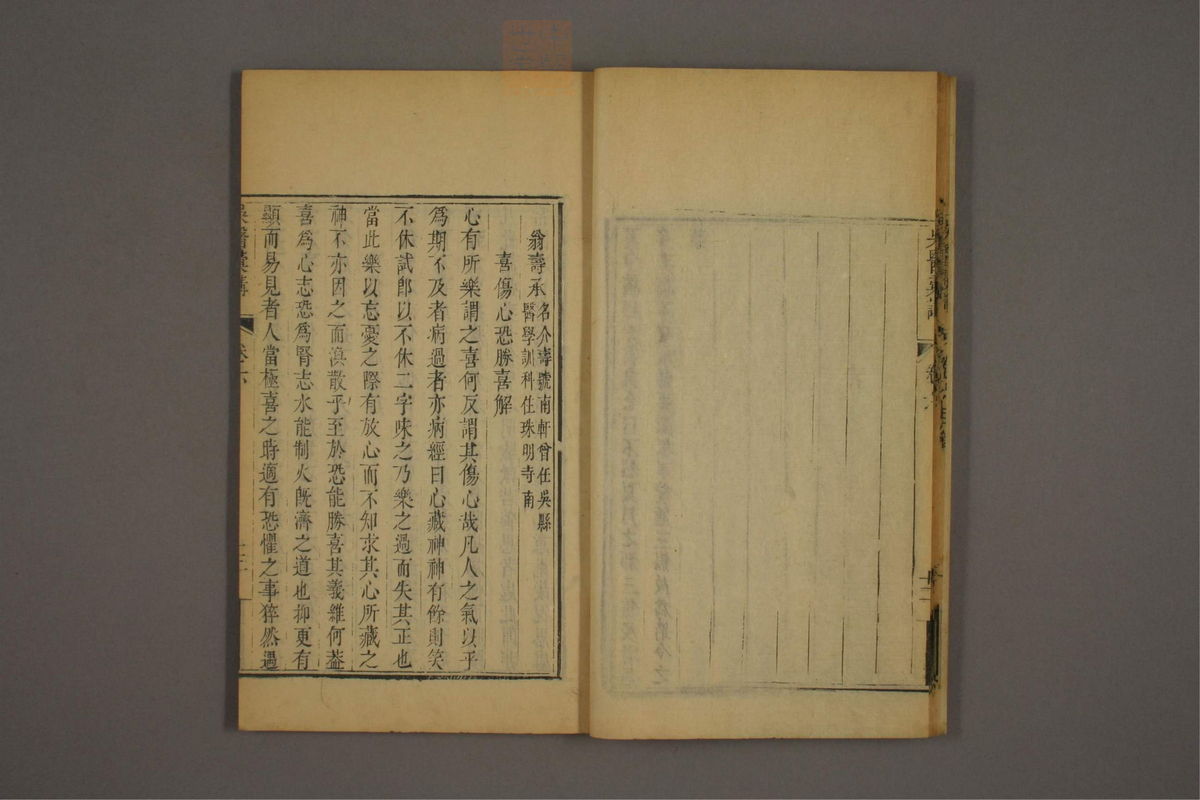 翁壽承名介壽號南軒曾任吳縣
醫學訓科住珠明寺南
喜傷心恐勝喜解
心有所樂謂之喜何反謂其傷心哉凡人之氣以平
爲期不及者病過者亦病經曰心藏神神有餘則笑
不休試卽以不休二字味之乃樂之過而失其正也
當此樂以忘憂之際有放心而不知求其心所藏之
神不亦因之而渙散乎至於恐能勝喜其義維何蓋
喜爲心志恐爲腎志水能制火旣濟之道也抑更有
顯而易見者人當極喜之時適有恐懼之事猝然遇
吳醫彙講
卷六